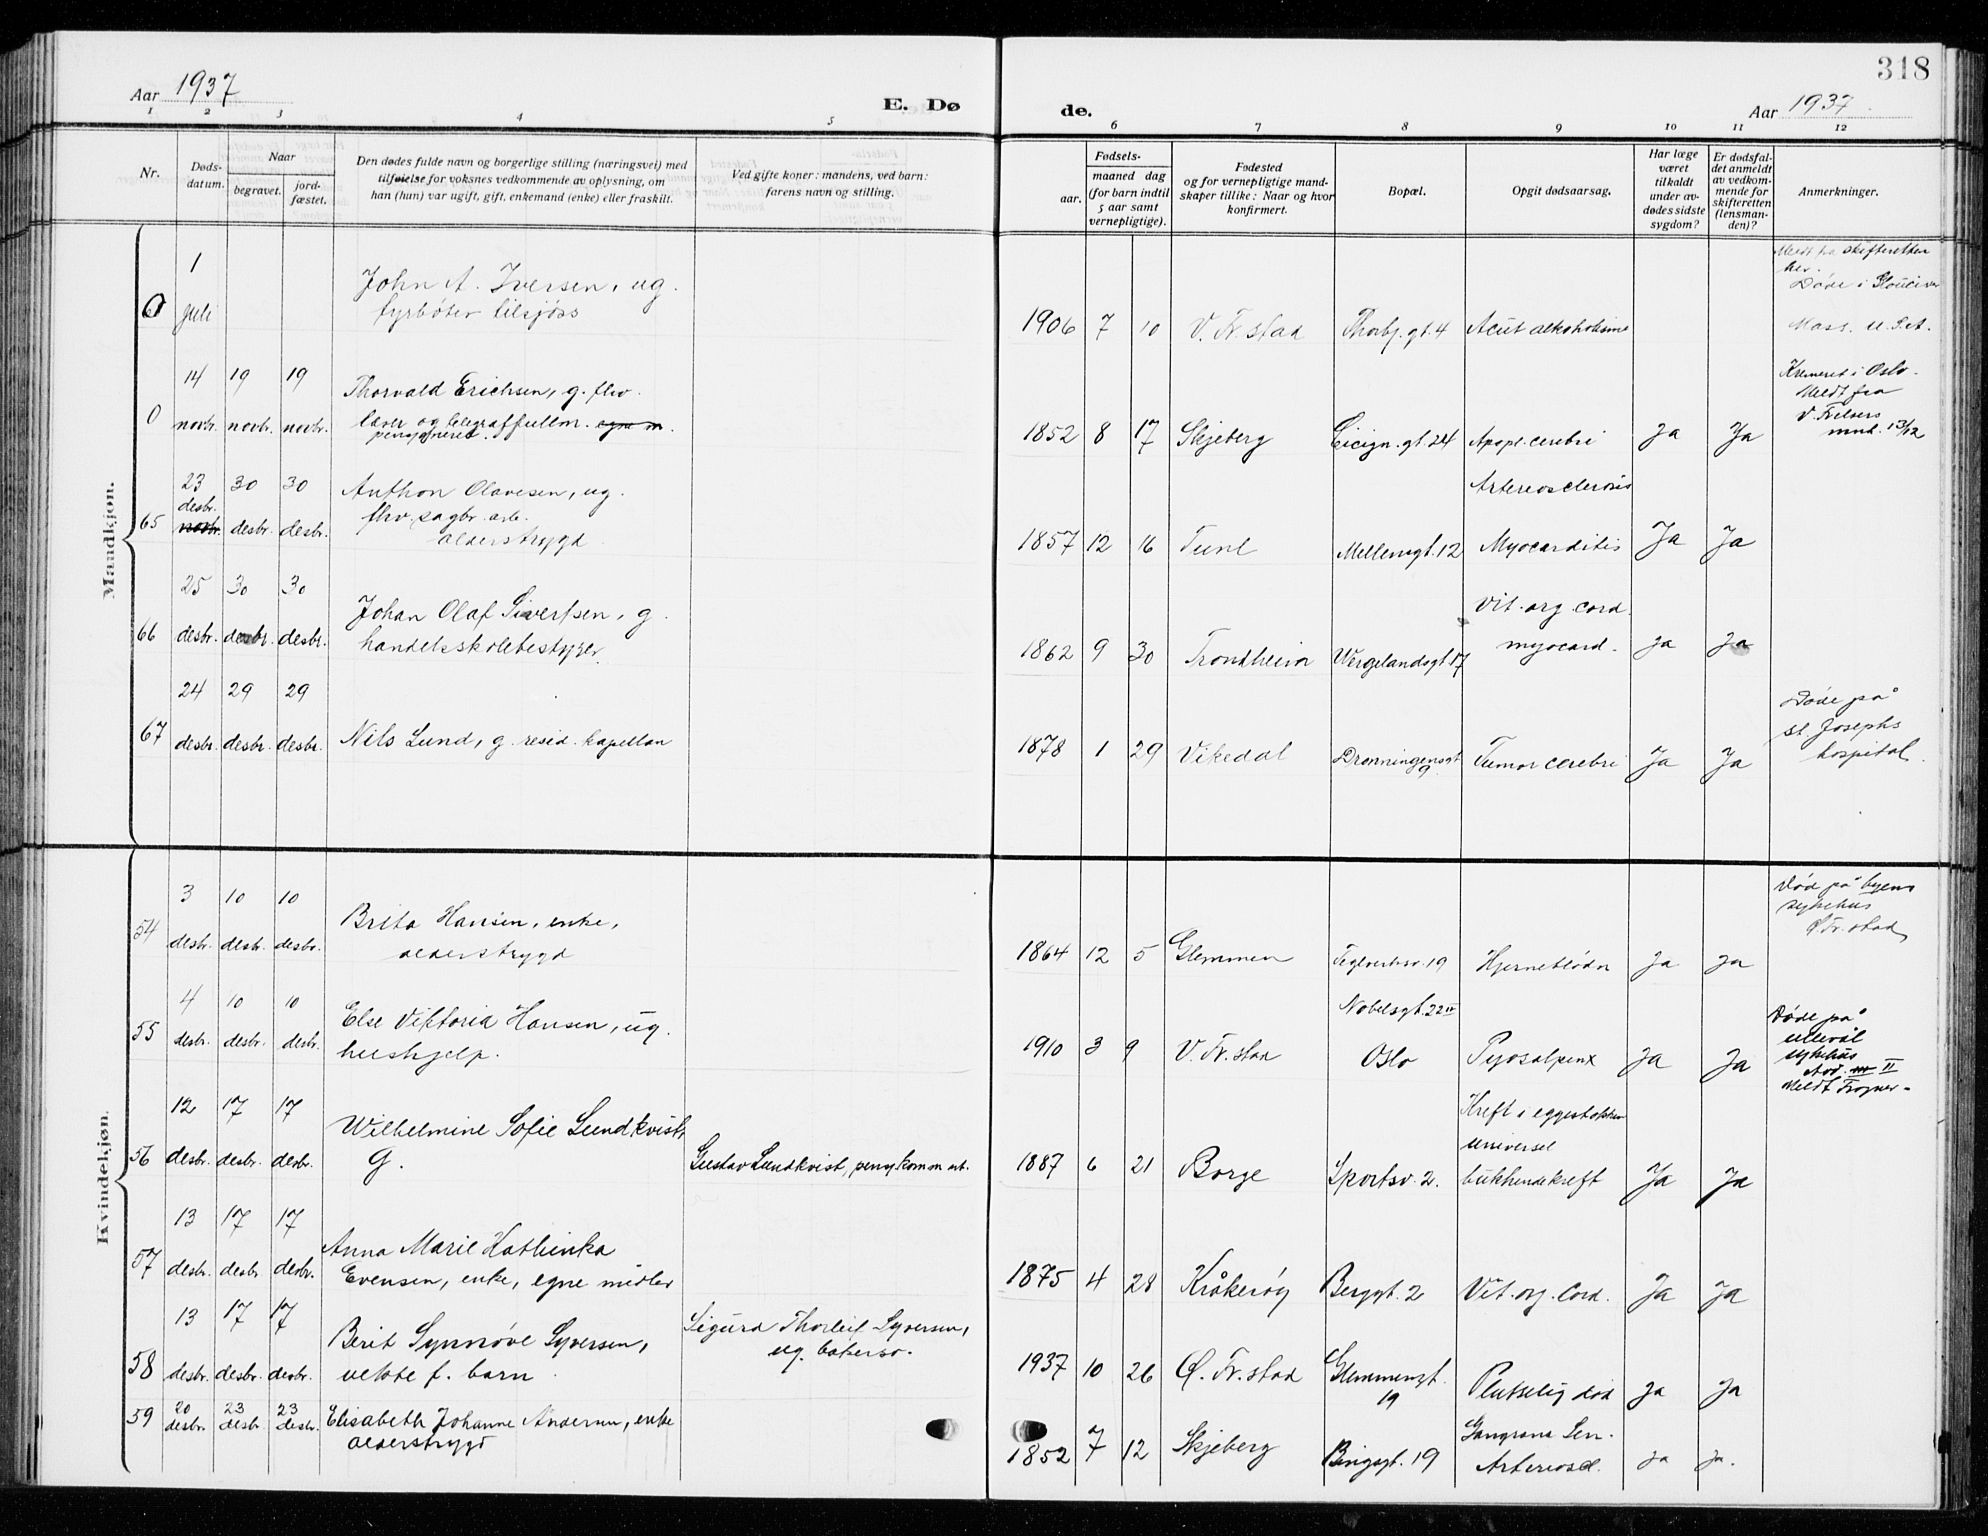 318
Aar 1937
E. Dø
de.
Aar 1937
1 2 3 4 5 6 7 8 9 10 11 12
Nr.
Døds-
datum.
Naar
begravet.
jord-
fæstet.
Den dødes fulde navn og borgerlige stilling (næringsvei) med
tilføielse for voksnes vedkommende av oplysning, om
han (hun) var ugift, gift, enkemand (enke) eller fraskilt.
Ved gifte koner: mandens, ved barn:
farens navn og stilling.
Fødsels-
aar.
maaned dag
(for barn indtil
5 aar samt
vernepligtige).
Fødested
og for vernepligtige mand-
skaper tillike: Naar og hvor
konfirmert.
Bopæl.
Opgit dødsaarsag.
Har læge
været
tilkaldt
under av-
dødes sidste
sygdom?
Er dødsfal-
det anmeldt
av vedkom-
mende for
skifteretten
(lensman-
den)?
Anmerkninger.
Mandkjøn.
0 1 juli
John A. Iversen, ug.
fyrbøter tilsjøss
1906 7 10 V. Fr.stad Thorbj. gt. 4 Acut alkoholisme
Meldt fra skifteretten
her.
Døde i
Mass. U.S.A.
0 14 novbr. 19 novbr. 19 novbr.
Thorvald Erichsen, g. fhv.
lærer og telegraffullm.
pensjonert.
1852 8 17 Skjeberg Cicign. gt. 24 Apopl. cerebri Ja Ja
Kremeret i Oslo.
Meldt fra
V. Frelsers
mnd. 13/12
65 23 desbr. novbr. 30 desbr. 30 desbr.
Anthon Olavesen, ug.
fhv. sagbr. arb.
alderstrygd
1857 12 16 Tune Mellemgt. 12
Artereosclerosis
Myocarditis Ja Ja
66 25 desbr. 30 desbr. 30 desbr.
Johan Olaf Sivertsen, g.
handelsskolebestyrer.
1862 9 30 Trondheim Wergelandsgt. 17
Vit. org. cord.
myocard. Ja Ja
67 24 desbr. 29 desbr. 29 desbr.
Nils Lund, g. resid. kapellan
1878 1 29 Vikedal Dronningensgt.
9
Tumor cerebri Ja Ja
Døde på
st. Josephs
hospital.
Kvindekjøn.
54 3 desbr. 10 desbr. 10 desbr.
Brita Hansen, enke,
alderstrygd
1864 12 5 Glemmen Teglverksv. 19 Hjerneblødn Ja Ja
Død på byens
sykehus
Ø. Fr.stad
55 4 desbr. 10 desbr. 10 desbr.
Else Viktoria Hansen, ug.
hushjelp.
1910 3 9 V. Fr.stad
Nobelsgt. 22 IV
Oslo Pyosalpinx Ja Ja
Døde på
ullevål
sykehus
avd. II
Meldt Frogner.
56 12 desbr. 17 desbr. 17 desbr.
Wilhelmine Sofie Lundkvist,
g.
Gustav Lundkvist, pensj. komm. arb.
1887 6 21 Borge Sportsv. 2.
Kreft i eggestokken
universel
bukhindekreft Ja Ja
57 13 desbr. 17 desbr 17 desbr.
Anna Marie Kathinka
Evensen, enke, egne midler
1875 4 28 Kråkerøy Berggt. 2 Vit. org. Cord. Ja Ja
58 13 desbr. 17 desbr. 17 desbr.
Berit Synnøve Syversen,
uekte f. barn
Sigurd Thorleif Syversen,
ug. bakersv.
1937 10 26 Ø. Fr.stad Glemmengt.
19
Plutselig død Ja Ja
59 20 desbr. 23 desbr. 23 desbr.
Elisabeth Johanne Andersen, enke
alderstrygd
1852 7 12 Skjeberg Bingsgt. 19
Gangræna Sen.
Arterioscl. Ja Ja.